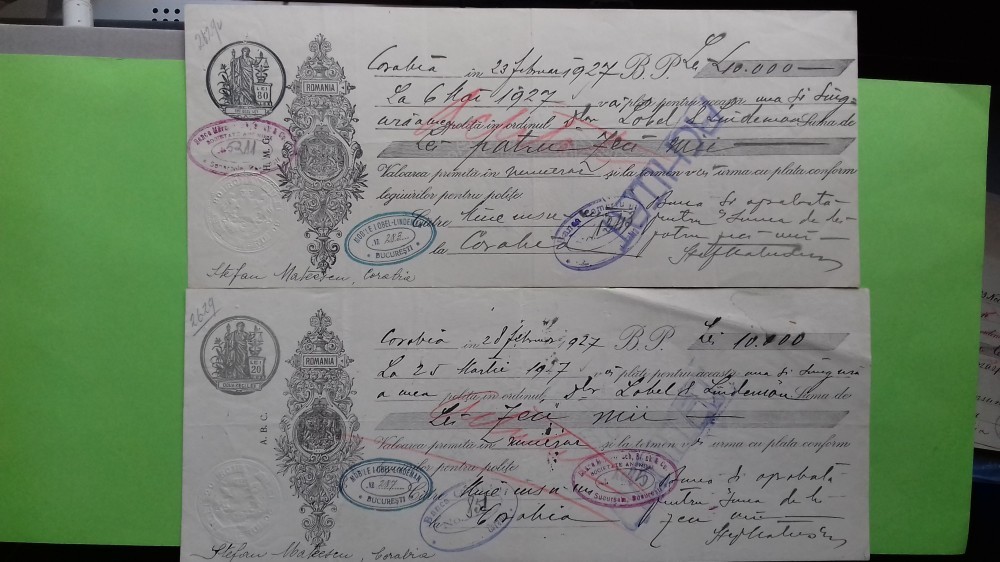 2629
ROMANIA
LEI 80
Corabia în 23 februar 1927 B.P. Lei 40.000
La 6 Mai 1927 veți plăti pentru aceasta una și singură
a mea poliță în ordinul Dlor Lobel & Lindeman Suma de
Lei patru zeci mii
Valoarea primită în numerar și la termen veți urma cu plata conform
legiuirilor pentru polițe.
Buna și aprobată
pentru Suma de lei
patru zeci mii
Către Mine insu-mi
la Corabia
MOBILE LOBEL-LINDEMAN
№ 282
BUCUREȘTI
211
Stefan Mateescu, Corabia
2629
ROMANIA
LEI 20
A. B. C.
Corabia în 28 februar 1927 B.P. Lei 10.000
La 25 Martie 1927 veți plăti pentru aceasta una și singură
a mea poliță în ordinul Dlor Lobel & Lindeman Suma de
Lei Zeci mii
Valoarea primită în numerar și la termen veți urma cu plata conform
legiuirilor pentru polițe.
Buna și aprobată
pentru Suma de lei
Zeci mii
Mine insu-mi
Corabia
MOBILE LOBEL-LINDEMAN
№ 287
BUCUREȘTI
SOCIETATE ANONIMA
Stefan Mateescu, Corabia